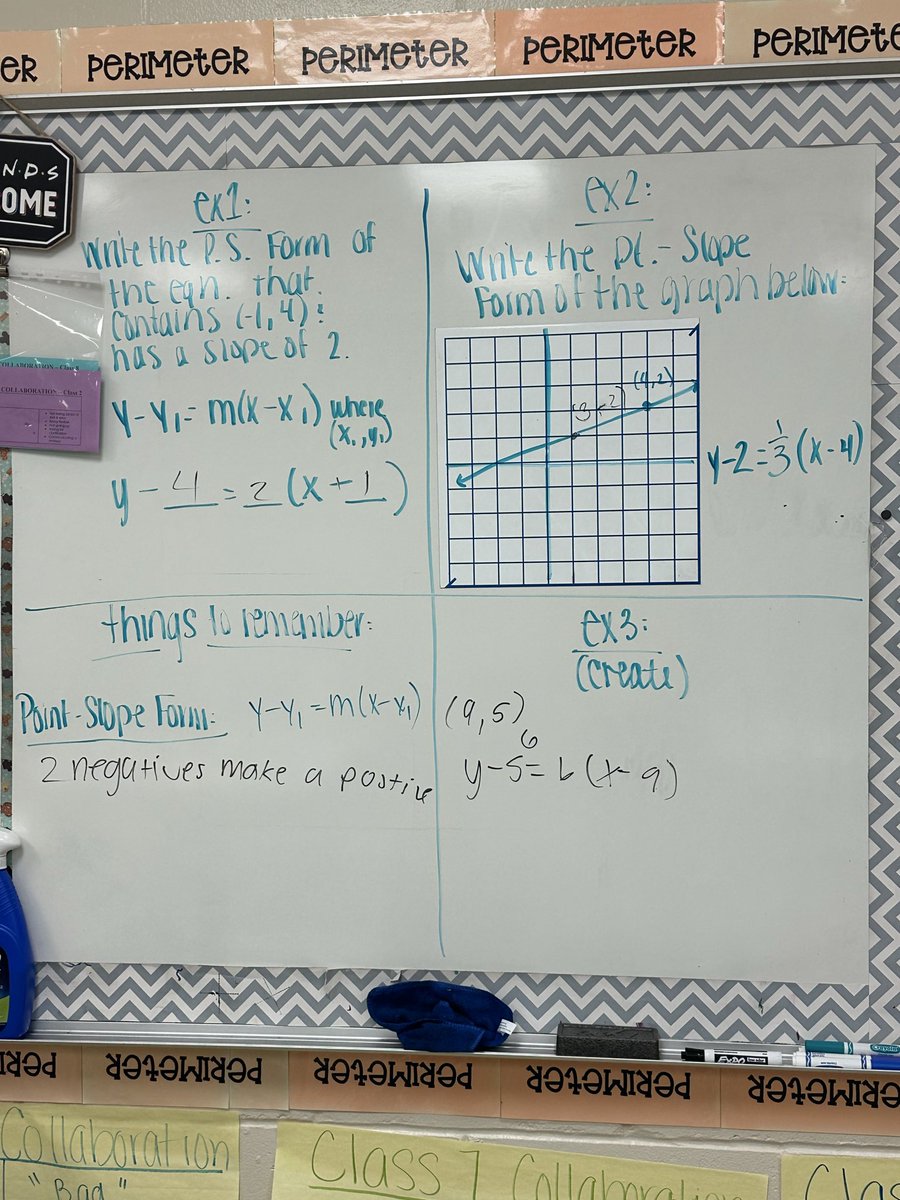 PERIMETER PERIMETER PERIMETER PERIMETER PERIMETE
N·D·S
OME
ex1:
Write the P.S. Form of
the eqn. that
contains (-1,4) &
has a slope of 2.
y-y₁= m(x-x₁) where
(x₁,y₁)
y-4=2(x+1)
ex2:
Write the Pt.-Slope
Form of the graph below:
(4,2)
y-2=⅓(x-4)
COLLABORATION - Class 8
COLLABORATION - Class 2
things to remember:
Point-Slope Form: y-y₁=m(x-x₁)
2 negatives make a postive
ex3:
(create)
(9,5)
6
y-5=6(x-9)
EXPO
Crayola
PERIMETER PERIMETER PERIMETER PERIMETER PERIMETER
Collaboration
"Bad"
Class 7 Collaboration
Clas